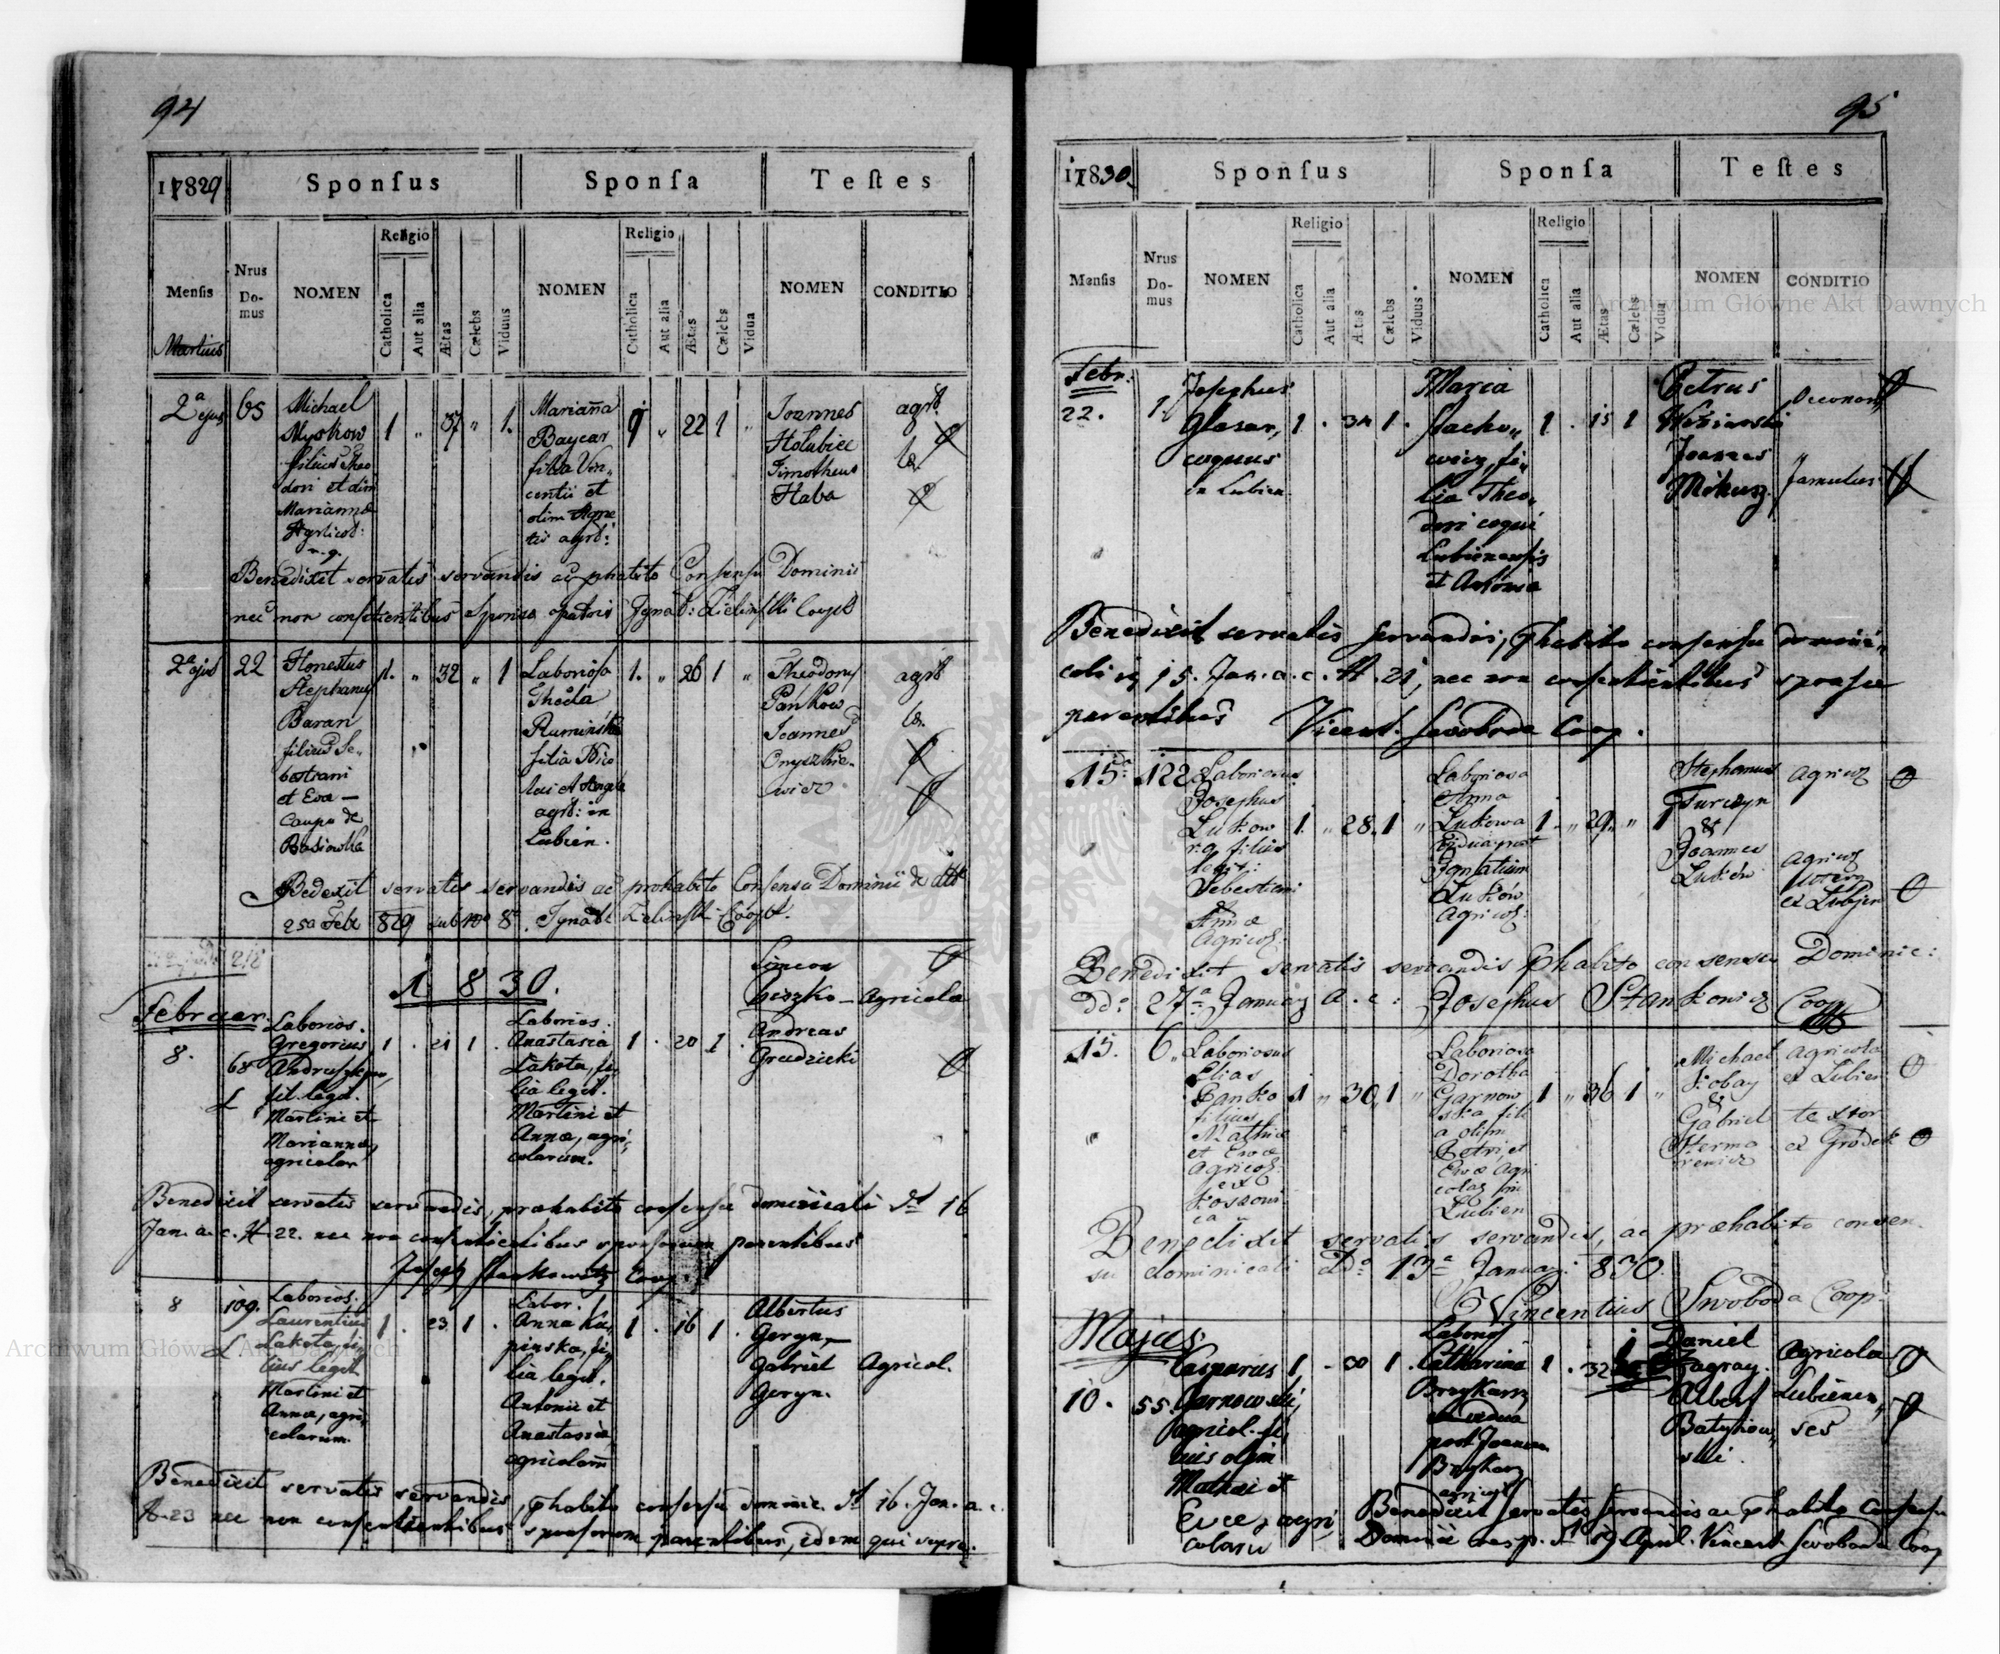 94
17829
Sponsus
Sponsa
Testes
Mensis
Nrus Domus
NOMEN
Religio
Catholica
Aut alia
Ætas
Cælebs
Viduus
NOMEN
Religio
Catholica
Aut alia
Ætas
Cælebs
Vidua
NOMEN
CONDITIO
Martius
2a ejus
65
Michael
Myskow
filius Theo
dori et dim
Marianna
Agricol:
n. g.
1 „ 37 „ 1.
Marianna
Baycar
filia Vin„
centii et
olim Agne
tis agrl:
1 „ 22 1 „
Joannes
Holubiec
Timotheus
Haba
agrl.
Benedixit servatis servandis ac phabito Consensu Dominii
nec non consentientibus Sponsa
2a ejus
22
Honestus
Stephanus
Baran
filius Se„
bastiani
et Eva —
Caupo de
1. „ 32 „ 1
Laboriosa
Thecla
Ruminska
filia Nico
lai et Angela
agrl: in
Lubien.
1. „ 26 1 „
Theodorus
Pankow
Joannes
Onyszkie„
wicz
agrl
servatis servandis ac prohabito Consensu Dominii de dtt
25a Feb 829 sub Nro 8
1 8 3 0.
Februar.
8.
68
Laborios.
Gregorius
fil. legit.
Martini et
Mariannæ,
agricolar
1 . 21 1 .
Laborios.
Anastasia
Lakota, fi„
lia legit.
Martini et
Annæ, agri„
colarum.
1 . 20 1 .
Simeon
Leszko —
Andreas
Grudzicki
Agricola
Benedixit servatis servandis, præhabito consensu dominicali dt 16
Jan. a. c. N. 22. nec non consentientibus sponsorum parentibus
Joseph Stankowitz Coop.
8
109.
Laborios.
Laurentius
Lakota, fi„
lius legit.
Martini et
Annæ, agri„
colarum.
1 . 23 1 .
Labor.
Anna Ka„
pinska, fi„
lia legit.
Antonii et
Anastasiæ,
agricolarum
1 . 16 1 .
Albertus
Geryn, —
Gabriel
Geryn.
Agricol.
Benedixit servatis servandis, phabito consensu dominic. dt 16. Jan. a. c.
N. 23 nec non consentientibus sponsorum parentibus, idem qui supra.
95
17830.
Sponsus
Sponsa
Testes
Mensis
Nrus Domus
NOMEN
Religio
Catholica
Aut alia
Ætas
Cælebs
Viduus
NOMEN
Religio
Catholica
Aut alia
Ætas
Cælebs
Vidua
NOMEN
CONDITIO
Febr.
22.
1.
Josephus
Glasar,
coquus
in Lubien.
1 . 34 1 .
Maria
Stacho„
wicz, fi„
lia Theo„
dori coqui
Lubienensis
et Antoniæ
1 . 15 1
Petrus
Joannes
Mikusz.
Oeconom
famulus
Benedixit servatis servandis, phabito consensu domini„
cali 15. Jan. a. c. N. 21, nec non consentientibus sponsæ
parentibus Vicent. Swoboda Coop.
15a
122
Laboriosus
Josephus
Lukow
r. g. filius
legit:
Sebestiani
&
Annæ
Agricol:
1. „ 28 1 „
Laboriosa
Anna
Lukowa
Vidua post
Ignatium
Lukow
Agricol:
1 „ 29 „ 1
Stephanus
Turczyn
&
Joannes
Lukow
Agricol
Agricol
uterq
ex Lubien
Benedixit servatis servandis phabito consensu Dominic:
ddo 27a January a. c: Josephus Stankowicz Coop
15.
6
Laboriosus
Elias
Panko
filius
Mathiæ
et Evæ
Agricol:
ex
Kossowi
ca
1 „ 30 1 „
Laboriosa
Dorotha
Garnow
ska fili
a olim
Petri, et
Evæ Agri
colar in
Lubien
1 „ 36 1 „
Michael
Kobay
&
Gabriel
Agricola
ex Lubien
textor
ex Grodek
Benedixit servatis servandis, ac præhabito consen„
su dominicali ddo 13a January 830.
Vincentius Swoboda Coop.
Majus.
10.
55.
Casparus
Garnowski,
agricol. fi„
lius olim
Mathæi et
Evæ, agri
colaru
1 . 30 1 .
Labories
Catharina
vidua
post Joannem
agricol
1 . 32
Daniel
Zagray.
Albert
Batyhow„
ski
Agricola
Lubienen„
ses
Benedixit servatis servandis ac phabito Consensu
Dominii dt 19 April. Vincent Swoboda Coop
Archiwum Główne Akt Dawnych
Archiwum Główne Akt Dawnych